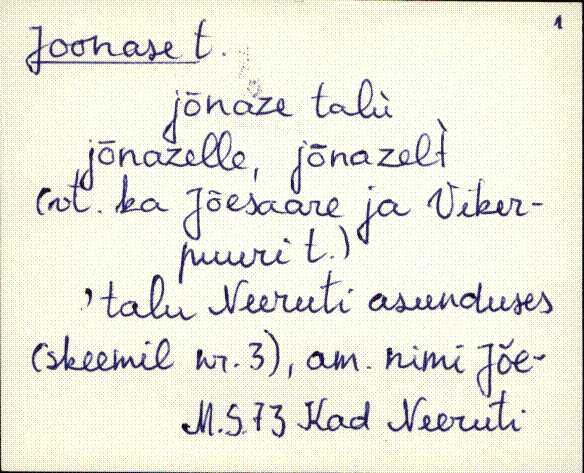 1
Joonase t.
jōnaze talù
jōnazelle, jōnazelt̀
(vt. ka Jõesaare ja Viker-
puuri t.)
, talu Neeruti asunduses
(skeemil nr. 3), am. nimi Jõe-
M.S.73 Kad Neeruti